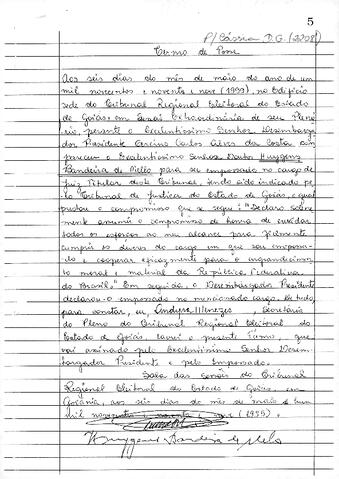 5
P/ Cássia D.G. (2208)
Termo de Posse
Aos seis dias do mês de maio do ano de um
mil novecentos e noventa e nove (1999), no Edifício
sede do Tribunal Regional Eleitoral do Estado
de Goiás, em Sessão Extraordinária de seu Plená-
rio, perante o Excelentíssimo Senhor Desembarga-
dor Presidente Arcino Carlos Alves da Costa, com-
pareceu o Excelentíssimo Senhor Doutor Huygens
Bandeira de Mello para ser empossado no cargo de
Juiz Titular deste Tribunal, tendo sido indicado pe-
lo Tribunal de Justiça do Estado de Goiás, o qual
prestou o compromisso que se segue: "Declaro sole-
nemente assumir o compromisso de honra de envidar
todos os esforços ao meu alcance para fielmente
cumprir os deveres do cargo em que sou empossa-
do e cooperar eficazmente para o engrandecimen-
to moral e material da República Federativa
do Brasil". Em seguida, o Desembargador Presidente
declarou-o empossado no mencionado cargo. De tudo,
para constar, eu, Menezes, Secretária
do Pleno do Tribunal Regional Eleitoral do
Estado de Goiás, lavrei o presente Termo, que
vai assinado pelo Excelentíssimo Senhor Desem-
bargador Presidente e pelo Empossado.
Sala das Sessões do Tribunal
Regional Eleitoral do Estado de Goiás, em
Goiânia, aos seis dias do mês de maio de um
mil novecentos e noventa e nove (1999).
Huygens Bandeira de Melo